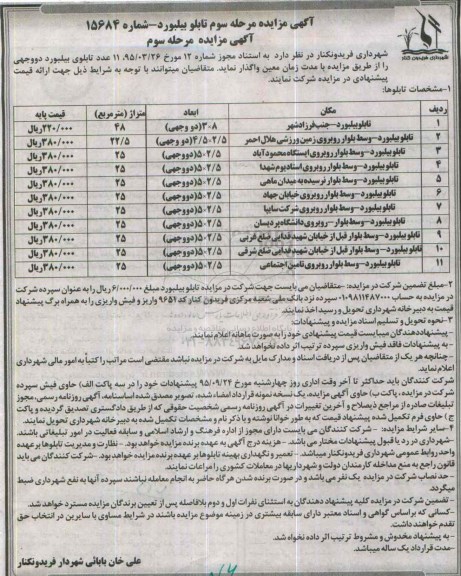 آگهی مزایده مرحله سوم تابلو بیلبورد–شماره ۱۵۶۸۴
آگهی مزایده مرحله سوم
شهرداری فریدونکنار در نظر دارد به استناد مجوز شماره ۱۲ مورخ ۹۵/۰۳/۲۶، ۱۱ عدد تابلوی بیلبورد دووجهی
را از طریق مزایده با مدت زمان معین واگذار نماید. متقاضیان میتوانند با توجه به شرایط ذیل جهت ارائه قیمت
پیشنهادی در مزایده شرکت نمایند.
۱–مشخصات تابلوها:
ردیف مکان ابعاد متراژ (مترمربع) قیمت پایه
۱ تابلو بیلبورد–جنب فرزادشهر ۳۰۸(دو وجهی) ۴۸ ۲۲۰/۰۰۰ریال
۲ تابلو بیلبورد–وسط بلوار روبروی زمین ورزشی هلال احمر ۴/۵۰۲/۵(دو وجهی) ۲۲/۵ ۳۸۰/۰۰۰ریال
۳ تابلو بیلبورد–وسط بلوار روبروی ایستگاه محمودآباد ۵۰۲/۵(دووجهی) ۲۵ ۳۸۰/۰۰۰ریال
۴ تابلو بیلبورد–وسط بلوار روبروی استادیوم شهدا ۵۰۲/۵(دووجهی) ۲۵ ۳۸۰/۰۰۰ریال
۵ تابلو بیلبورد–وسط بلوار نرسیده به میدان ماهی ۵۰۲/۵(دووجهی) ۲۵ ۳۸۰/۰۰۰ریال
۶ تابلو بیلبورد–وسط بلوار روبروی خیابان جهاد ۵۰۲/۵(دووجهی) ۲۵ ۳۸۰/۰۰۰ریال
۷ تابلو بیلبورد–وسط بلوار روبروی شرکت سایپا ۵۰۲/۵(دووجهی) ۲۵ ۳۸۰/۰۰۰ریال
۸ تابلو بیلبورد–وسط بلوار–روبروی دانشگاه پردیسان ۵۰۲/۵(دووجهی) ۲۵ ۳۸۰/۰۰۰ریال
۹ تابلو بیلبورد–وسط بلوار قبل از خیابان شهید فدایی ضلع غربی ۵۰۲/۵(دووجهی) ۲۵ ۳۸۰/۰۰۰ریال
۱۰ تابلو بیلبورد–وسط بلوار قبل از خیابان شهید فدایی ضلع شرقی ۵۰۲/۵(دووجهی) ۲۵ ۳۸۰/۰۰۰ریال
۱۱ تابلو بیلبورد–وسط بلوار روبروی تامین اجتماعی ۵۰۲/۵(دووجهی) ۲۵ ۳۸۰/۰۰۰ریال
۲–مبلغ تضمین شرکت در مزایده:–متقاضیان می بایست جهت شرکت در مزایده تابلو بیلبورد مبلغ ۶/۰۰۰/۰۰۰ریال را به عنوان سپرده شرکت
در مزایده به حساب ۰۱۰۹۸۱۱۴۸۷۰۰۰ سپرده نزد بانک ملی شعبه مرکزی فریدون کنار کد ۹۶۵۱ واریز و فیش واریزی را به همراه برگ پیشنهاد
قیمت به دبیرخانه شهرداری تحویل و رسید اخذ نمایند.
۳–نحوه تحویل و تسلیم اسناد مزایده و پیشنهادات:
–پیشنهاددهندگان میبایست قیمت پیشنهادی خود را به صورت ماهانه اعلام نمایند.
–به پیشنهادات فاقد فیش واریزی سپرده ترتیب اثر داده نخواهد شد.
–چنانچه هر یک از متقاضیان پس از دریافت اسناد و مدارک مایل به شرکت در مزایده نباشد مقتضی است مراتب را کتباً به امور مالی شهرداری
اعلام نماید.
شرکت کنندگان باید حداکثر تا آخر وقت اداری روز چهارشنبه مورخ ۹۵/۰۹/۲۴ پیشنهادات خود را در سه پاکت الف) حاوی فیش سپرده
شرکت در مزایده، پاکت ب) حاوی آگهی مزایده، یک نسخه نمونه قرارداد امضاء شده، تصویر مصدق شده اساسنامه، آگهی روزنامه رسمی، مجوز
تبلیغات صادره از مراجع ذیصلاح و آخرین تغییرات در آگهی روزنامه رسمی شخصیت حقوقی که از طریق دادگستری تصدیق گردیده و پاکت
ج) حاوی فرم تکمیل شده پیشنهاد قیمت که به طور خوانا نوشته و با ذکر نام و مشخصات تکمیل شده به دبیرخانه شهرداری تحویل نمایند.
۴–سایر شرایط مزایده: – شرکت کنندگان می بایست دارای مجوز از اداره فرهنگ و ارشاد اسلامی و سابقه فعالیت در امور تبلیغاتی باشند.
–شهرداری در رد یا قبول پیشنهادات مختار می باشد. –هزینه درج آگهی به عهده برنده مزایده خواهد بود. – نظارت و مدیریت تابلوها بر عهده
واحد روابط عمومی شهرداری فریدونکنار میباشد. – تعمیر و نگهداری بهینه تابلوها بر عهده برنده مزایده خواهد بود. –شرکت کنندگان می باید
قانون راجع به منع مداخله کارمندان دولت و شهرداریها در معاملات کشوری را مراعات نمایند.
–حد نصاب شرکت در مزایده یک نفر می باشد و در صورت برنده شدن هرگاه حاضر به انجام معامله نباشند سپرده آنها به نفع شهرداری ضبط
میگردد.
–تضمین شرکت در مزایده کلیه پیشنهاد دهندگان به استثنای نفرات اول و دوم بلافاصله پس از تعیین برندگان مزایده مسترد خواهد شد.
–کسانی که براساس گواهی و اسناد معتبر دارای سابقه بیشتری در زمینه موضوع مزایده باشند در شرایط مساوی با سایرین در انتخاب حق
تقدم خواهند داشت.
–به پیشنهاد مخدوش و مشروط ترتیب اثر داده نخواهد شد.
–مدت قرارداد یک ساله میباشد.
علی خان بابائی شهردار فریدونکنار